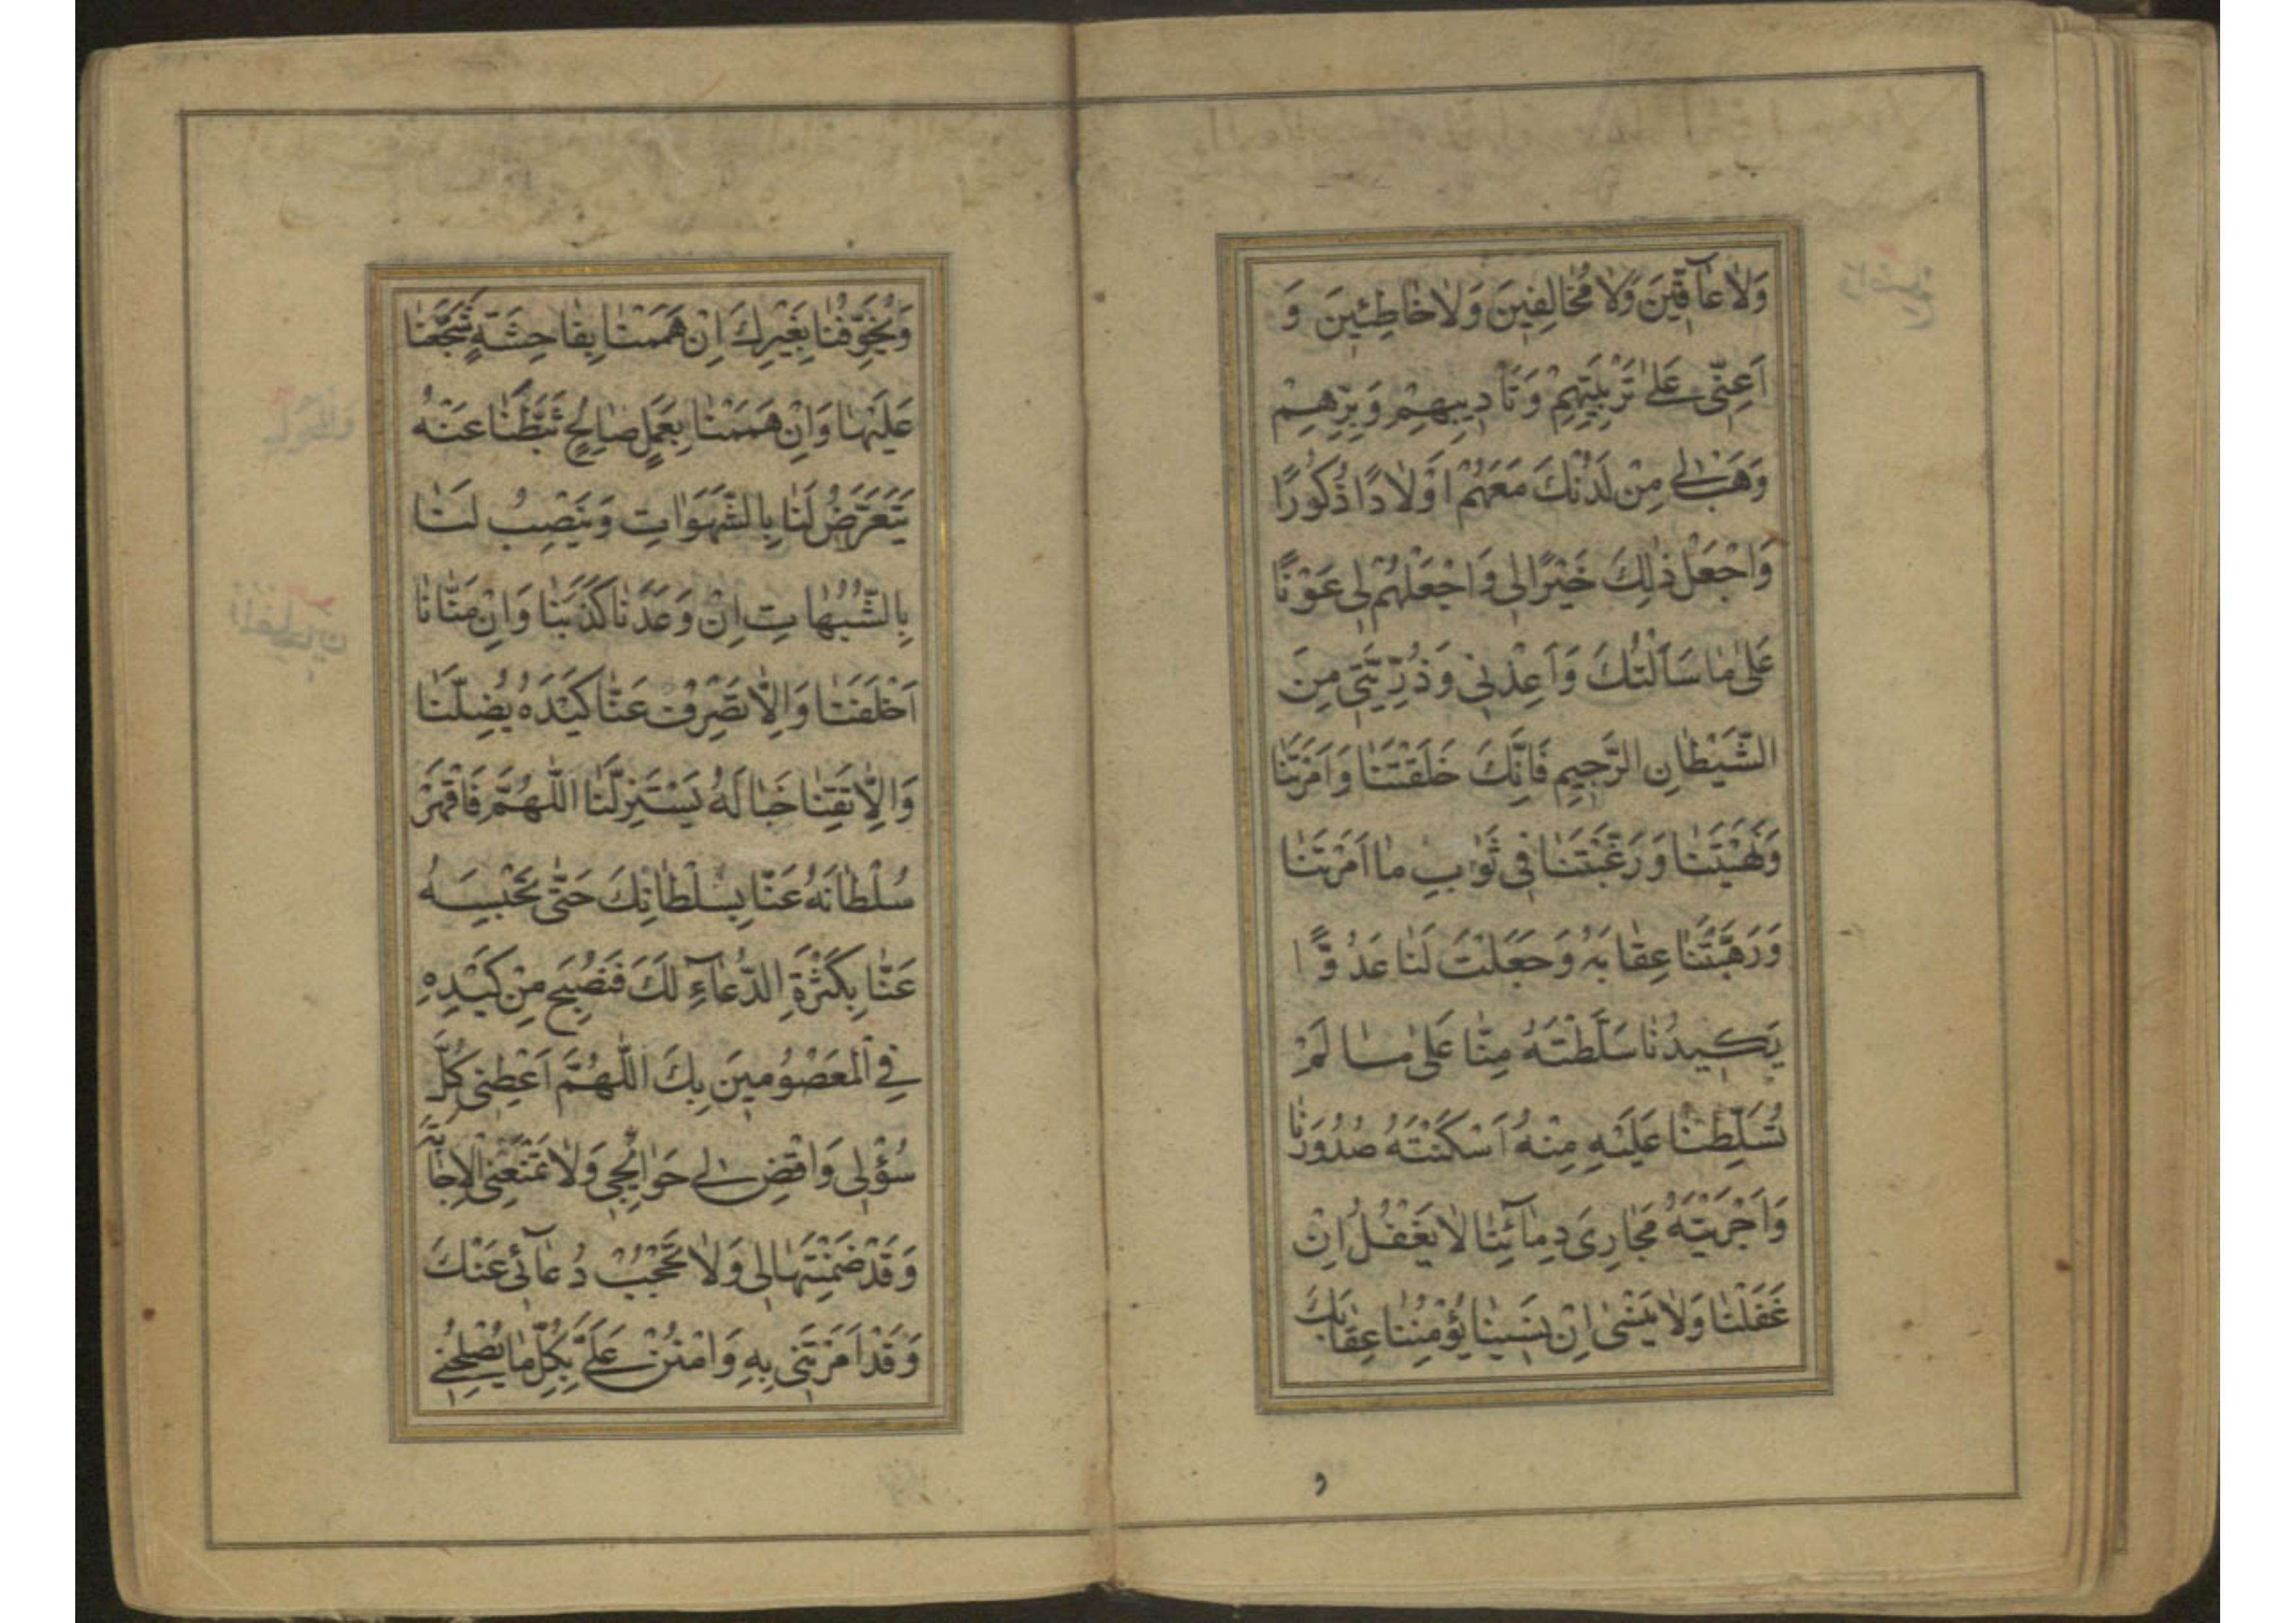 وَلَا عَآقّٖينَ وَلَا مُخَالِفِينَ وَلَا خَاطِئِينَ وَ
اَعِنّٖى عَلٰى تَرْبِيَتِهِمْ وَتَأدِيبِهِمْ وَبِرِّهِمْ
وَهَبْ لٖى مِنْ لَدُنْكَ مَعَهُمْ اَوْلَادًا ذُكُورًا
وَاجْعَلْ ذٰلِكَ خَيْرًا لٖى وَاجْعَلْهُمْ لٖى عَوْنًا
عَلٰى مَا سَاَلْتُكَ وَاَعِذْنٖى وَذُرِّيَّتٖى مِنَ
الشَّيْطَانِ الرَّجِيمِ فَاِنَّكَ خَلَقْتَنَا وَاَمَرْتَنَا
وَنَهَيْتَنَا وَرَغَّبْتَنَا فِى ثَوَابِ مَا اَمَرْتَنَا
وَرَهَّبْتَنَا عِقَابَهُ وَجَعَلْتَ لَنَا عَدُوًّا
يَكِيدُنَا سَلَّطْتَهُ مِنَّا عَلٰى مَا لَمْ
تُسَلِّطْنَا عَلَيْهِ مِنْهُ اَسْكَنْتَهُ صُدُورَنَا
وَاَجْرَيْتَهُ مَجَارِىَ دِمَآئِنَا لَا يَغْفُلُ اِنْ
غَفَلْنَا وَلَا يَنْسٰى اِنْ نَسِينَا يُؤْمِنُنَا عِقَابَكَ
وَيُخَوِّفُنَا بِغَيْرِكَ اِنْ هَمَمْنَا بِفَاحِشَةٍ شَجَّعَنَا
عَلَيْهَا وَاِنْ هَمَمْنَا بِعَمَلٍ صَالِحٍ ثَبَّطَنَا عَنْهُ
يَتَعَرَّضُ لَنَا بِالشَّهَوَاتِ وَيَنْصِبُ لَنَا
بِالشُّبُهَاتِ اِنْ وَعَدَنَا كَذَبَنَا وَاِنْ مَنَّانَا
اَخْلَفَنَا وَاِلَّا تَصْرِفْ عَنَّا كَيْدَهُ يُضِلَّنَا
وَاِلَّا تَقِنَا خَبَالَهُ يَسْتَزِلَّنَا اَللّٰهُمَّ فَاقْهَرْ
سُلْطَانَهُ عَنَّا بِسُلْطَانِكَ حَتّٰى تَحْبِسَهُ
عَنَّا بِكَثْرَةِ الدُّعَآءِ لَكَ فَنُصْبِحَ مِنْ كَيْدِهِ
فِى الْمَعْصُومِينَ بِكَ اَللّٰهُمَّ اَعْطِنٖى كُلَّ
سُؤْلٖى وَاقْضِ لٖى حَوَائِجٖى وَلَا تَمْنَعْنِى الْاِجَابَةَ
وَقَدْ ضَمِنْتَهَا لٖى وَلَا تَحْجُبْ دُعَآئٖى عَنْكَ
وَقَدْ اَمَرْتَنٖى بِهِ وَامْنُنْ عَلَىَّ بِكُلِّ مَا يُصْلِحُنٖى